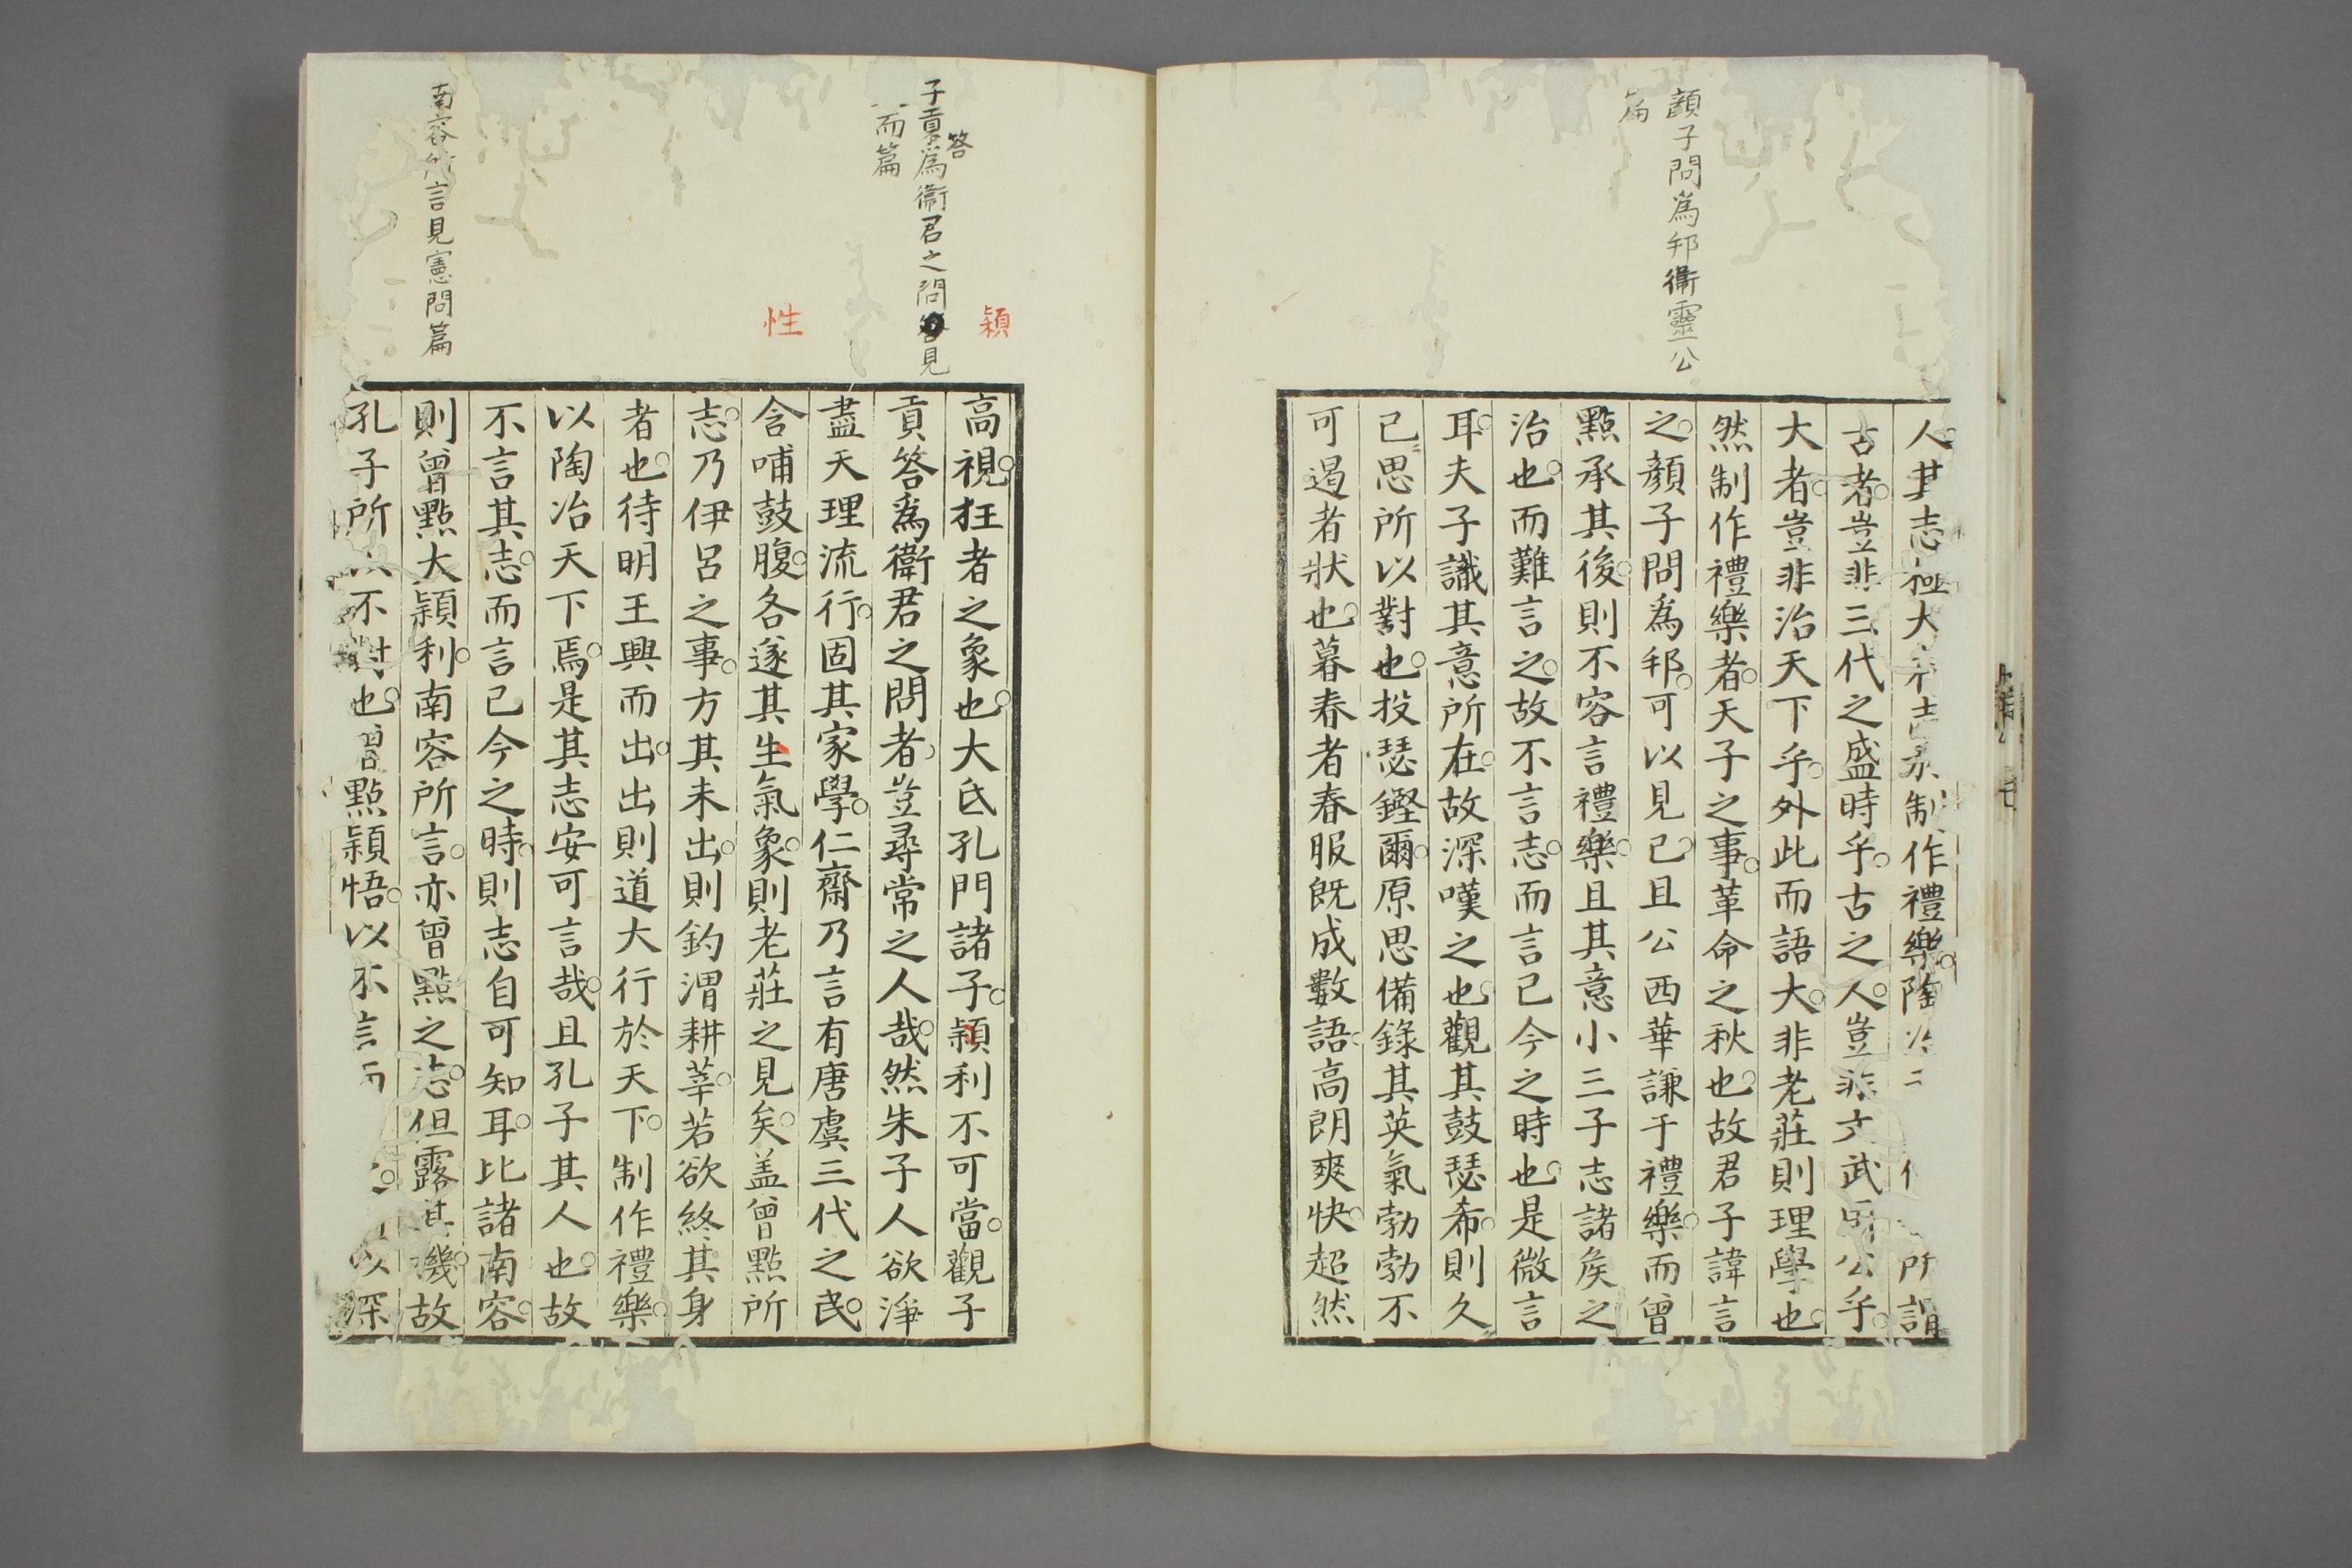 顔子問爲邦衛靈公
篇
人其志極大
制作禮樂陶
所謂
古者豈非三代之盛時乎古之人豈非文武周公乎
大者豈非治天下乎外此而語大非老莊則理學也
然制作禮樂者天子之事革命之秋也故君子諱言
之顔子問爲邦可以見已且公西華謙于禮樂而曾
點承其後則不容言禮樂且其意小三子志諸矦之
治也而難言之故不言志而言已今之時也是微言
耳夫子識其意所在故深嘆之也觀其鼓瑟希則久
已思所以對也投瑟鏗爾原思備錄其英氣勃勃不
可遏者狀也暮春者春服既成數語高朗爽快超然
穎
子貢為衞君之問見
答
而篇
性
南容
言見憲問篇
高視狂者之象也大氐孔門諸子穎利不可當觀子
貢答爲衛君之問者豈尋常之人哉然朱子人欲淨
盡天理流行固其家學仁齋乃言有唐虞三代之民
含哺鼓腹各遂其生氣象則老莊之見矣盖曾點所
志乃伊呂之事方其未出則釣渭耕莘若欲終其身
者也待明王興而出出則道大行於天下制作禮樂
以陶冶天下焉是其志安可言哉且孔子其人也故
不言其志而言已今之時則志自可知耳比諸南容
則曾點大穎利南容所言亦曾點之志但露其機故
孔子所以不對也曾點穎悟以不言
以深